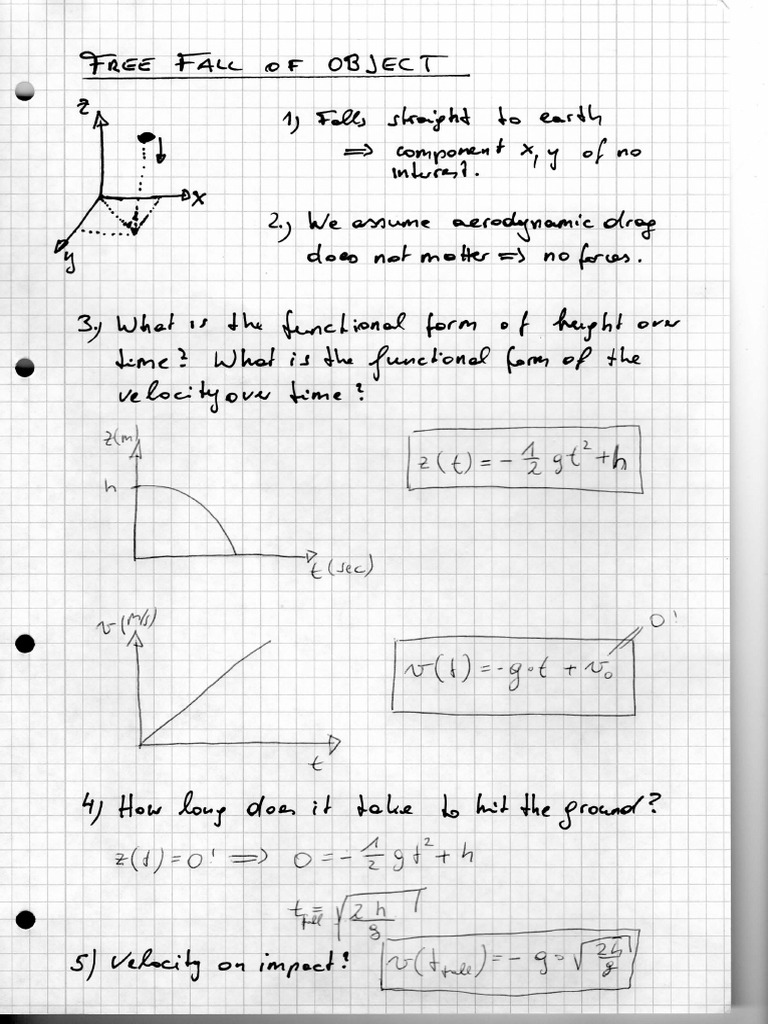 FREE FALL OF OBJECT
z
x
y
1) Falls straight to earth
⇒ component x, y of no
interest.
2.) We assume aerodynamic drag
does not matter ⇒ no forces.
3.) What is the functional form of height over
time? What is the functional form of the
velocity over time?
z(m)
h
t (sec)
z(t) = - 1/2 gt² + h
v(m/s)
t
0!
v(t) = -g·t + v₀
4) How long does it take to hit the ground?
z(t) = 0! ⇒ 0 = - 1/2 gt² + h
t_fall = √(2h/g)
5) Velocity on impact?
v(t_fall) = - g·√(2h/g)